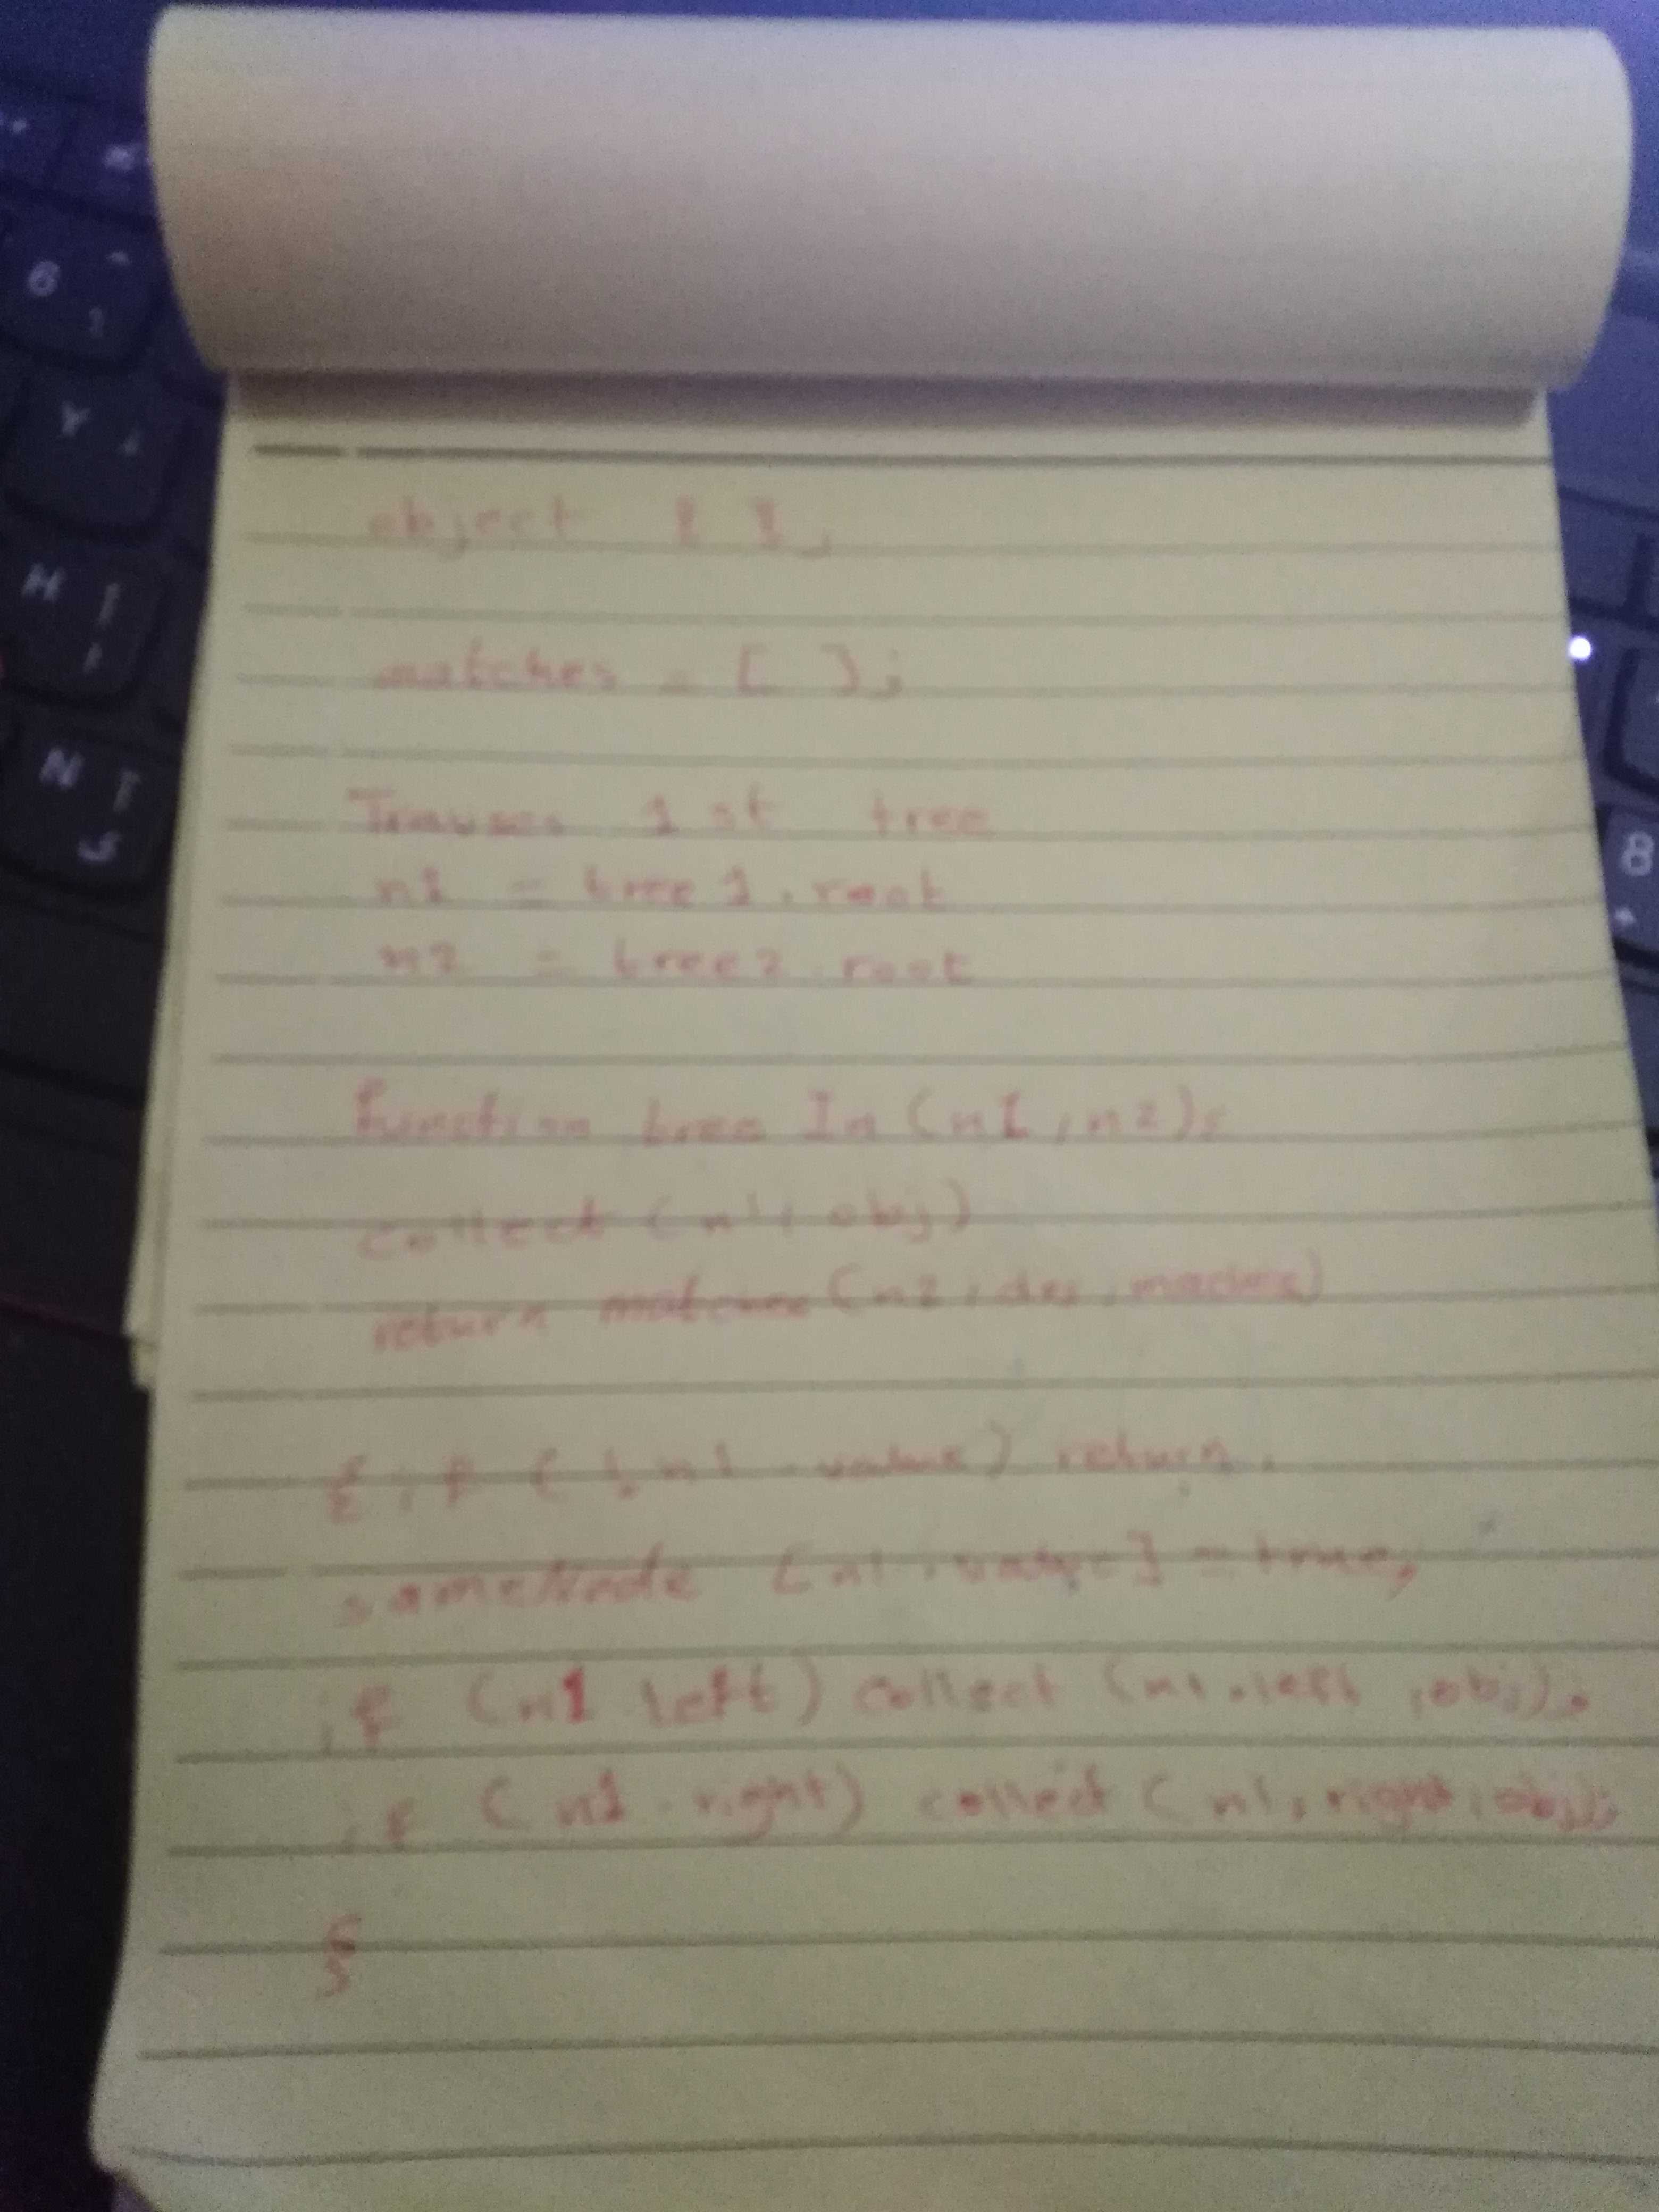 object { },
matches = [ ];
Traverses 1 st tree
n1 = tree 1 . root
n2 = tree 2 . root
function tree In (n1 , n2);
collect (n1 , obj)
return matches (n2 ,
{ if ( ! n1 . value) return ,
sameNode [n1 . value] = true,
if (n1 left) collect (n1 . left , obj);
if (n1 . right) collect (n1 . right , obj);
}
6
Y
H
N
8